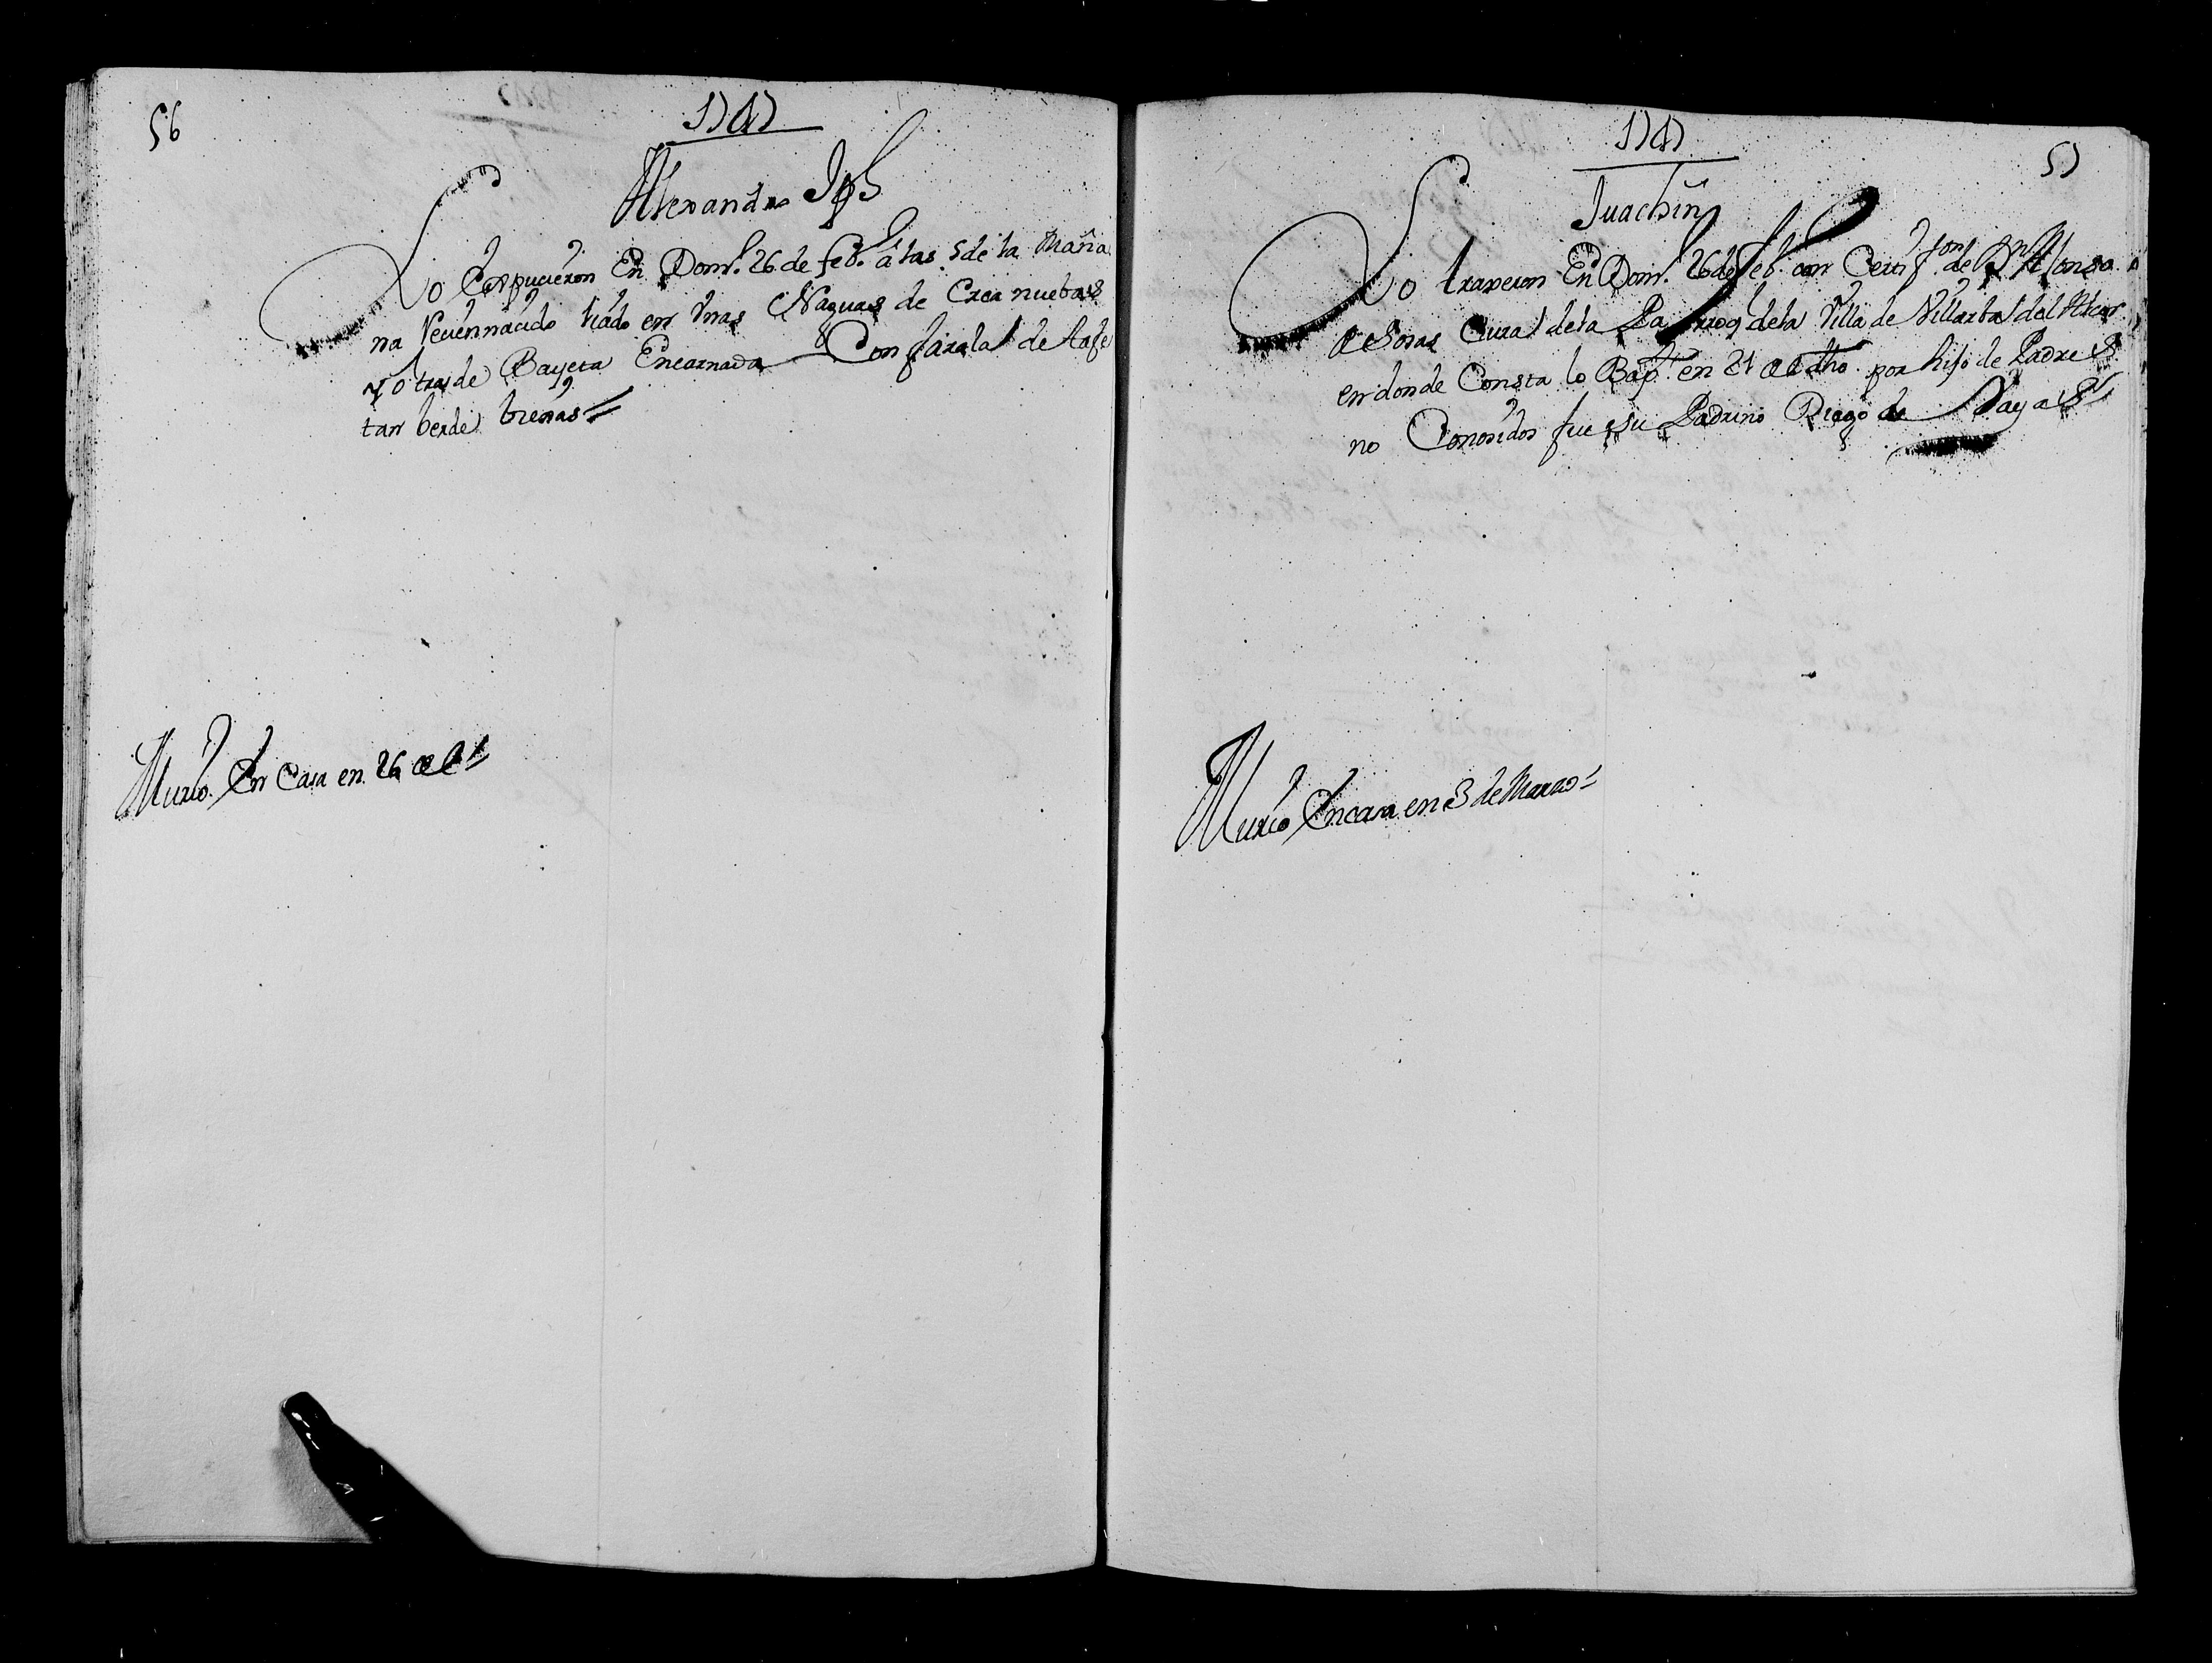 56
1747
Alexandro Jph
Lo Expucieron En Dom.º 26 de feb.º â las 5 de la Maña
na Reciennacido liado en Vnas Naguas de Crea nuebas
y otras de Bayeta Encarnada Con farala de tafe
tan berde biejas
Murio En Casa en 26 de
1747
57
Juachin
Lo traxeron En Dom.º 26 de feb.º con Certif.on de Dn Alonso
cura de la Parroq de la Villa de Villarba del Alcor
en donde Consta lo Bap.º en 21 de dho por hijo de Padres
no Conosidos fue su Padrino Diego de
Murio En casa en 3 de Marzo